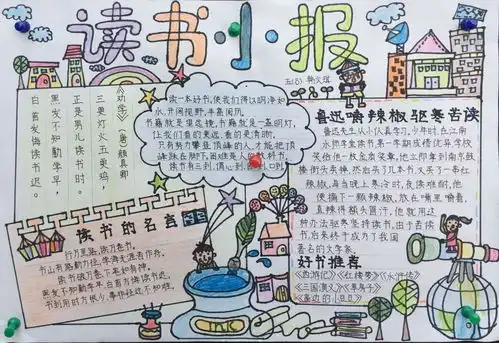 读书小报
五(8) 韩火琪
《劝学》(唐)颜真卿
三更灯火五更鸡，
正是男儿读书时。
黑发不知勤学早，
白首方悔读书迟。
读一本好书，使我们得以明净如
水，开阔视野，丰富阅历。
书籍就是望远镜，书籍就是一盏明灯，
让我们看的更远、看的更清晰。
只有努力攀登顶峰的人，才能把顶
峰踩在脚下。困难是人的教科书。
读书有三到，谓心到，眼到，口到。
鲁迅嚼辣椒驱寒苦读
鲁迅先生从小认真学习。少年时，在江南
水师学堂读书，第一学期成绩优异，学校
奖给他一枚金质奖章。他立即拿到南京鼓
楼街头卖掉，然后买了几本书，又买了一串红
辣椒。每当晚上寒冷时，夜读难耐，他
便摘下一颗辣椒，放在嘴里嚼着，
直辣得额头冒汗。他就用这
种办法驱寒坚持读书。由于苦读
书，后来终于成为了我国
著名的文学家。
读书的名言
行万里路，读万卷书。
书山有路勤为径，学海无涯苦作舟。
读书破万卷，下笔如有神。
黑发不知勤学早，白首方悔读书迟。
书到用时方恨少，事非经过不知难。
好书推荐
《西游记》《红楼梦》《水浒传》
《三国演义》《草房子》
INK